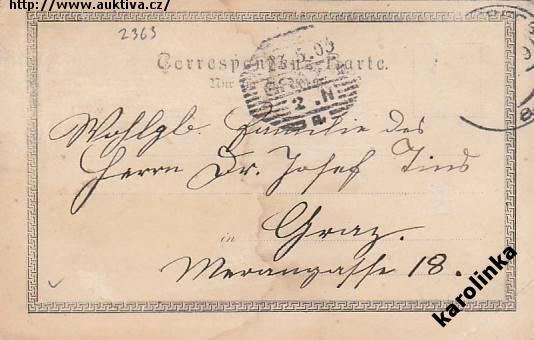 http://www.auktiva.cz/
2363
Correspondenz-Karte.
Nur für die
5.00
2.N
8
Wohlgb. Familie des
Herrn Dr. Josef Tins
in Graz.
Merangasse 18.
karolinka